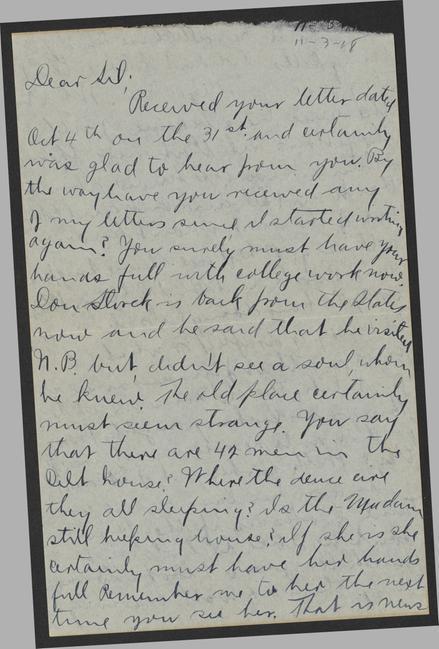 11-3-18
Dear Sil;
Received your letter dated
Oct 4th on the 31st. and certainly
was glad to hear from you. By
the way have you received any
of my letters since I started writing
again? You surely must have your
hands full with college work now.
Don Storck is back from the States
now and he said that he visited
N.B. but didn't see a soul, whom
he knew. The old place certainly
must seem strange. You say
that there are 42 men in the
Delt house? Where the deuce are
they all sleeping? Is the Madam
still keeping house? If she is she
certainly must have her hands
full Remember me to her the next
time you see her. That is news